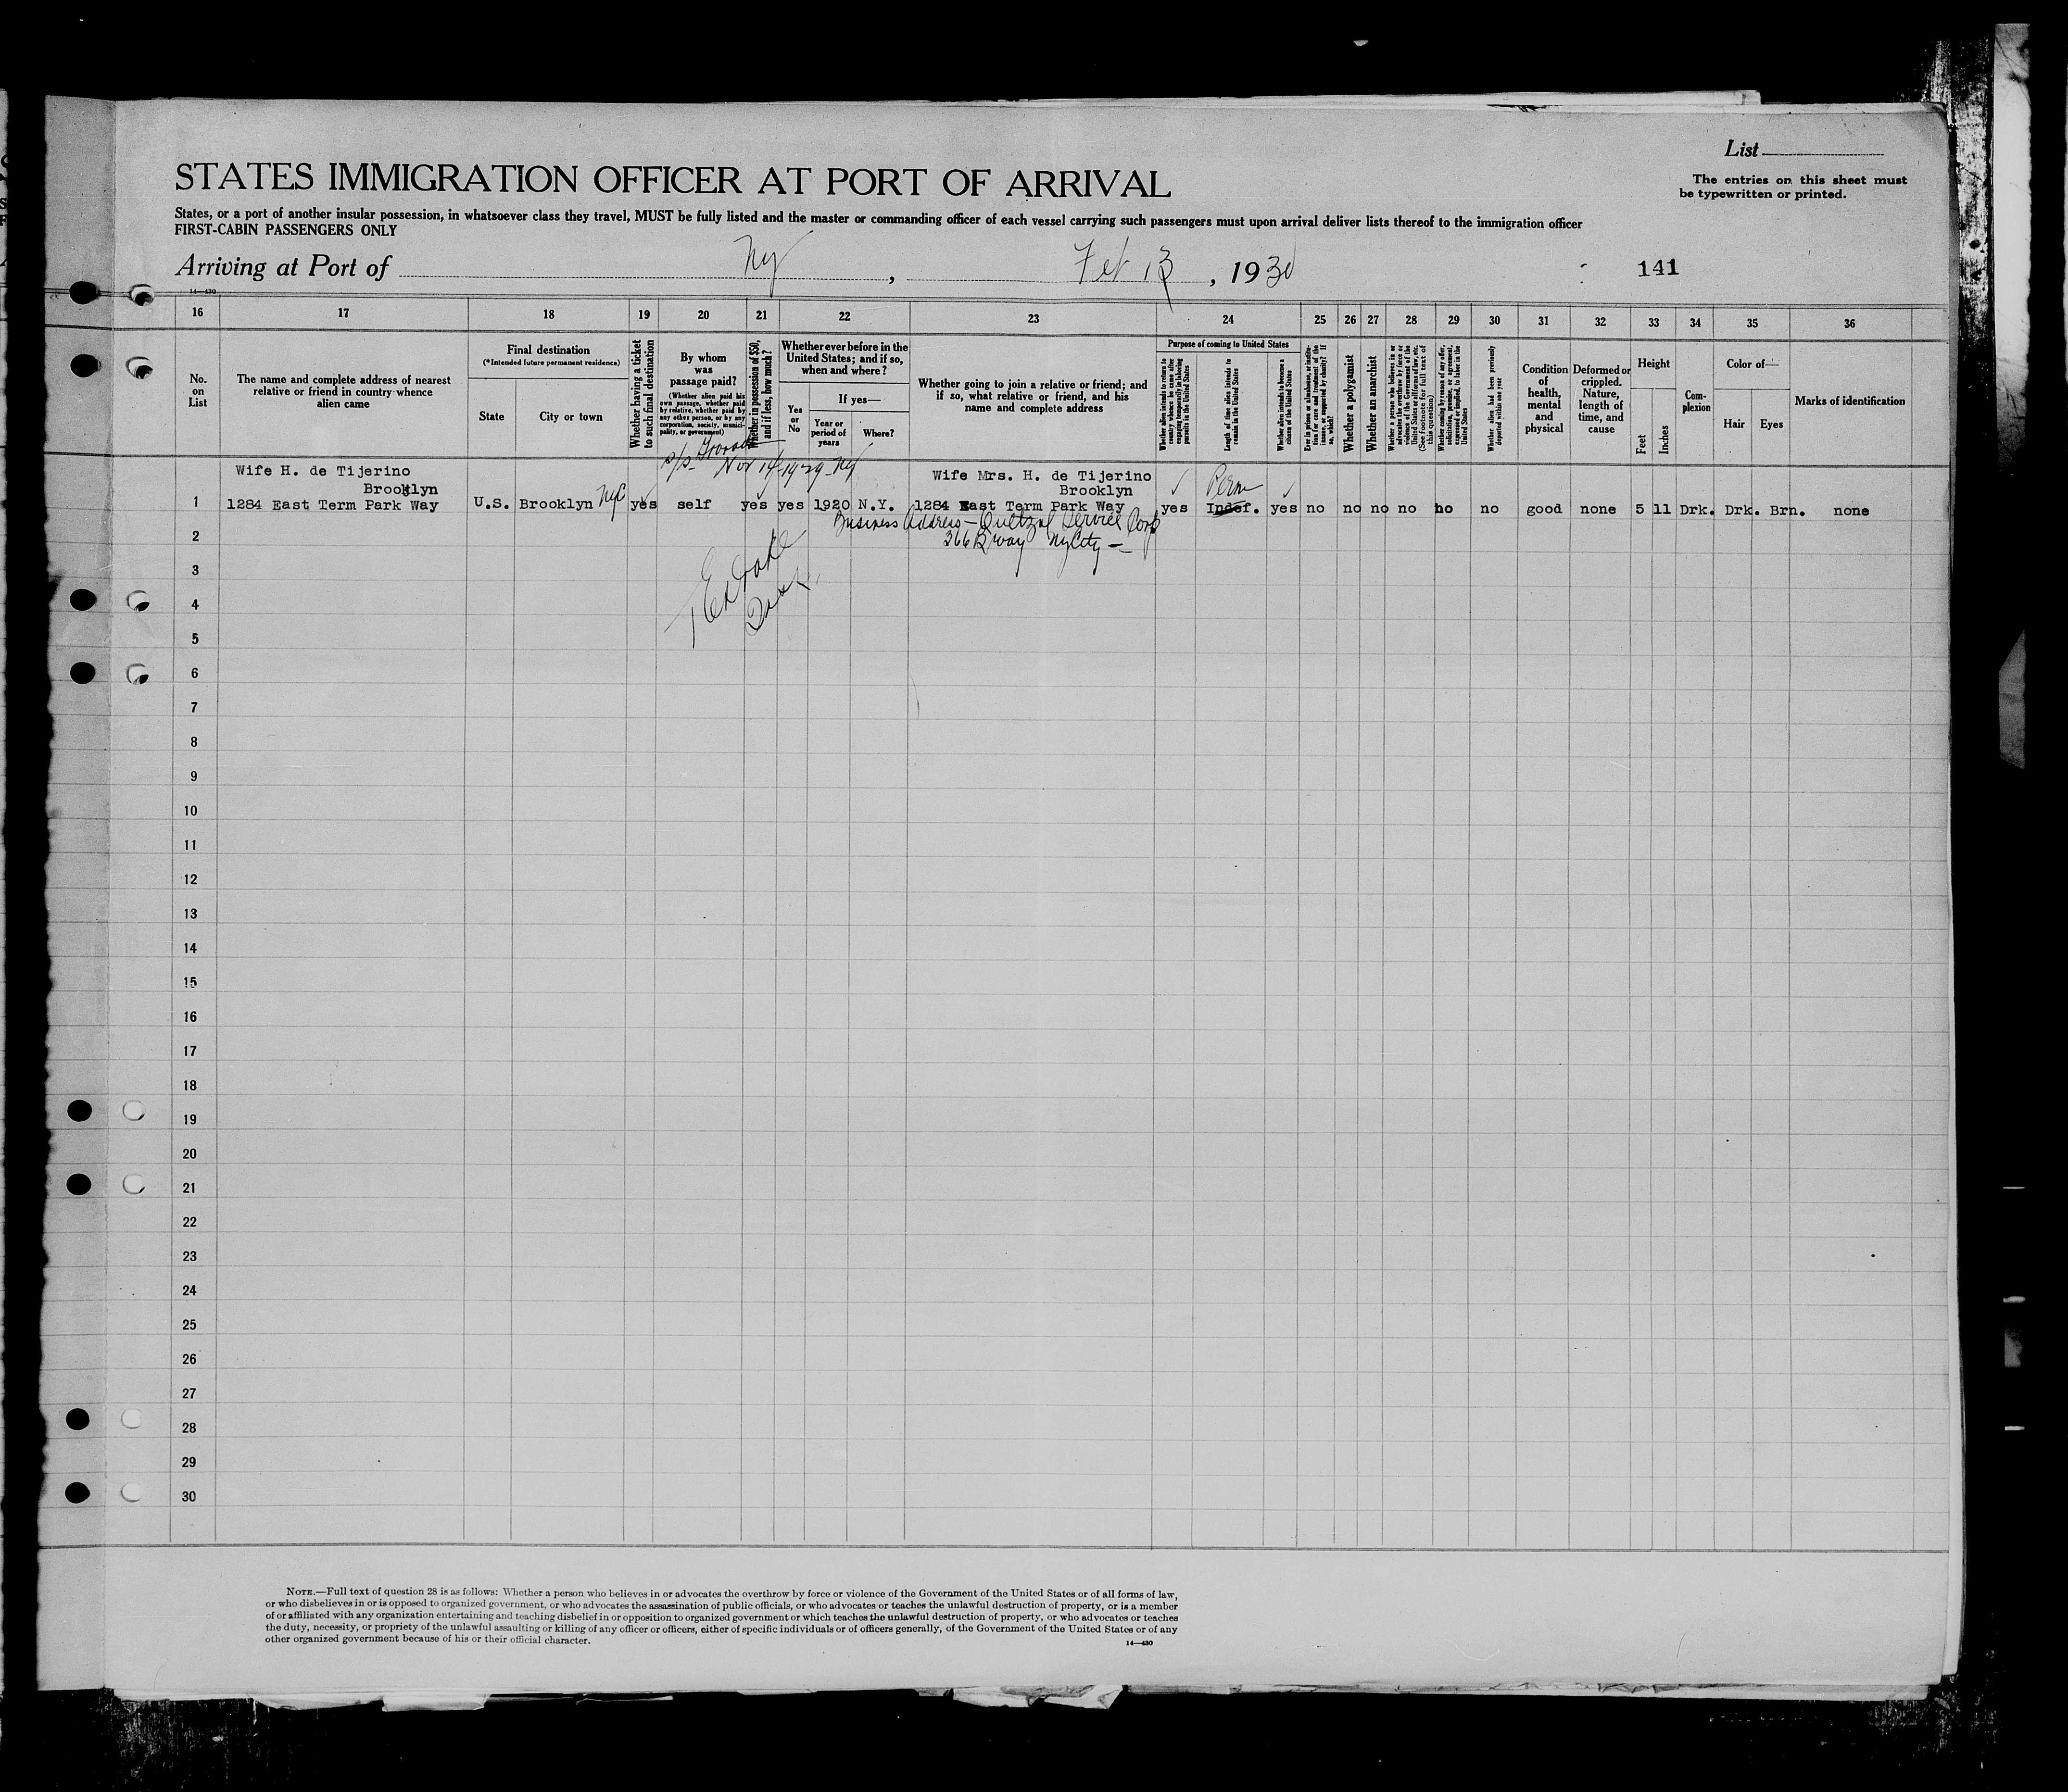 List
STATES IMMIGRATION OFFICER AT PORT OF ARRIVAL
The entries on this sheet must
be typewritten or printed.
States, or a port of another insular possession, in whatsoever class they travel, MUST be fully listed and the master or commanding officer of each vessel carrying such passengers must upon arrival deliver lists thereof to the immigration officer
FIRST-CABIN PASSENGERS ONLY
Arriving at Port of Ny, Feb 13, 1930
141
14—430
16 17 18 19 20 21 22 23 24 25 26 27 28 29 30 31 32 33 34 35 36
No.
on
List
The name and complete address of nearest
relative or friend in country whence
alien came
Final destination
(*Intended future permanent residence)
State
City or town
Whether having a ticket
to such final destination
By whom
was
passage paid?
(Whether alien paid his
own passage, whether paid
by relative, whether paid by
any other person, or by any
corporation, society, munici-
pality, or government)
Whether in possession of $50,
and if less, how much?
Whether ever before in the
United States; and if so,
when and where?
Yes
or
No
If yes—
Year or
period of
years
Where?
Whether going to join a relative or friend; and
if so, what relative or friend, and his
name and complete address
Purpose of coming to United States
Whether alien intends to return to
country whence he came after
engaging temporarily in laboring
pursuits in the United States
Length of time alien intends to
remain in the United States
Whether alien intends to become a
citizen of the United States
Ever in prison or almshouse, or institu-
tion for care and treatment of the
insane, or supported by charity? If
so, which?
Whether a polygamist
Whether an anarchist
Whether a person who believes in or
advocates the overthrow by force or
violence of the Government of the
United States or all forms of law, etc.
(See footnote for full text of
this question)
Whether coming by reason of any offer,
solicitation, promise, or agreement,
expressed or implied, to labor in the
United States
Whether alien had been previously
deported within one year
Condition
of
health,
mental
and
physical
Deformed or
crippled.
Nature,
length of
time, and
cause
Height
Feet
Inches
Com-
plexion
Color of—
Hair
Eyes
Marks of identification
Nov 14-1929-Ny
Wife H. de Tijerino
Brooklyn
1 1284 East Term Park Way U.S. Brooklyn NYC yes self yes yes 1920 N.Y.
Wife Mrs. H. de Tijerino
Brooklyn
1284 East Term Park Way
Perm
yes Indef. yes no no no no no no good none 5 11 Drk. Drk. Brn. none
Business Address - Quetzal Service Corp
366 B'way Ny City —
2
3
4
5
6
7
8
9
10
11
12
13
14
15
16
17
18
19
20
21
22
23
24
25
26
27
28
29
30
NOTE.—Full text of question 28 is as follows: Whether a person who believes in or advocates the overthrow by force or violence of the Government of the United States or of all forms of law,
or who disbelieves in or is opposed to organized government, or who advocates the assassination of public officials, or who advocates or teaches the unlawful destruction of property, or is a member
of or affiliated with any organization entertaining and teaching disbelief in or opposition to organized government or which teaches the unlawful destruction of property, or who advocates or teaches
the duty, necessity, or propriety of the unlawful assaulting or killing of any officer or officers, either of specific individuals or of officers generally, of the Government of the United States or of any
other organized government because of his or their official character.
14—430